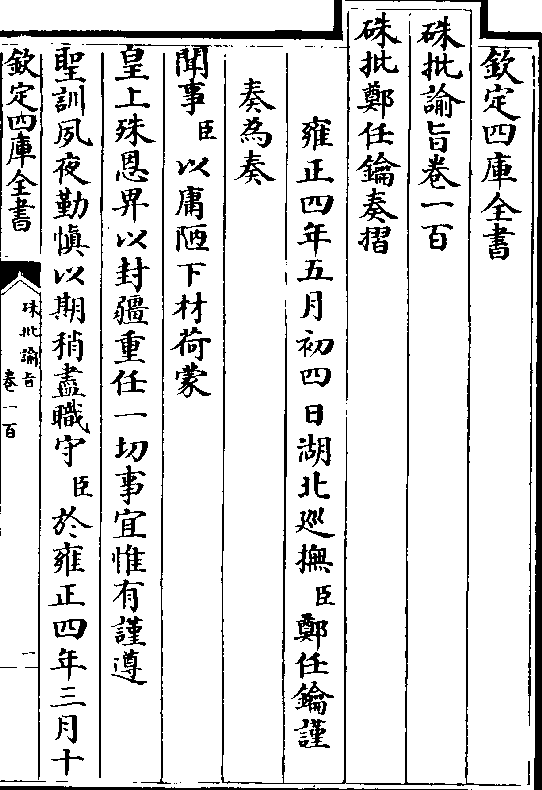 欽定四庫全書
硃批諭旨卷一百
硃批鄭任鑰奏摺
雍正四年五月初四日湖北巡撫臣鄭任鑰謹
奏為奏
聞事臣以庸陋下材荷蒙
皇上殊恩畀以封疆重任一切事宜惟有謹遵
聖訓夙夜勤慎以期稍盡職守臣於雍正四年三月十
欽定四庫全書
硃批諭旨
卷一百
一